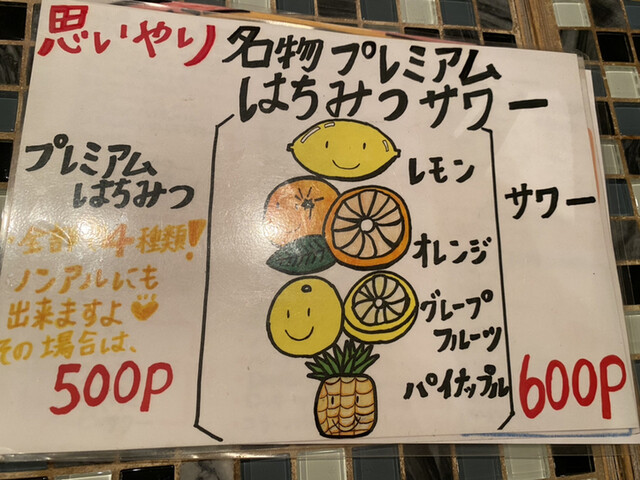 思いやり
名物プレミアム
はちみつサワー
プレミアム
はちみつ
レモン
オレンジ
グレープ
フルーツ
パイナップル
サワー
600P
全部で4種類!
ノンアルにも
出来ますよ
その場合は、
500P